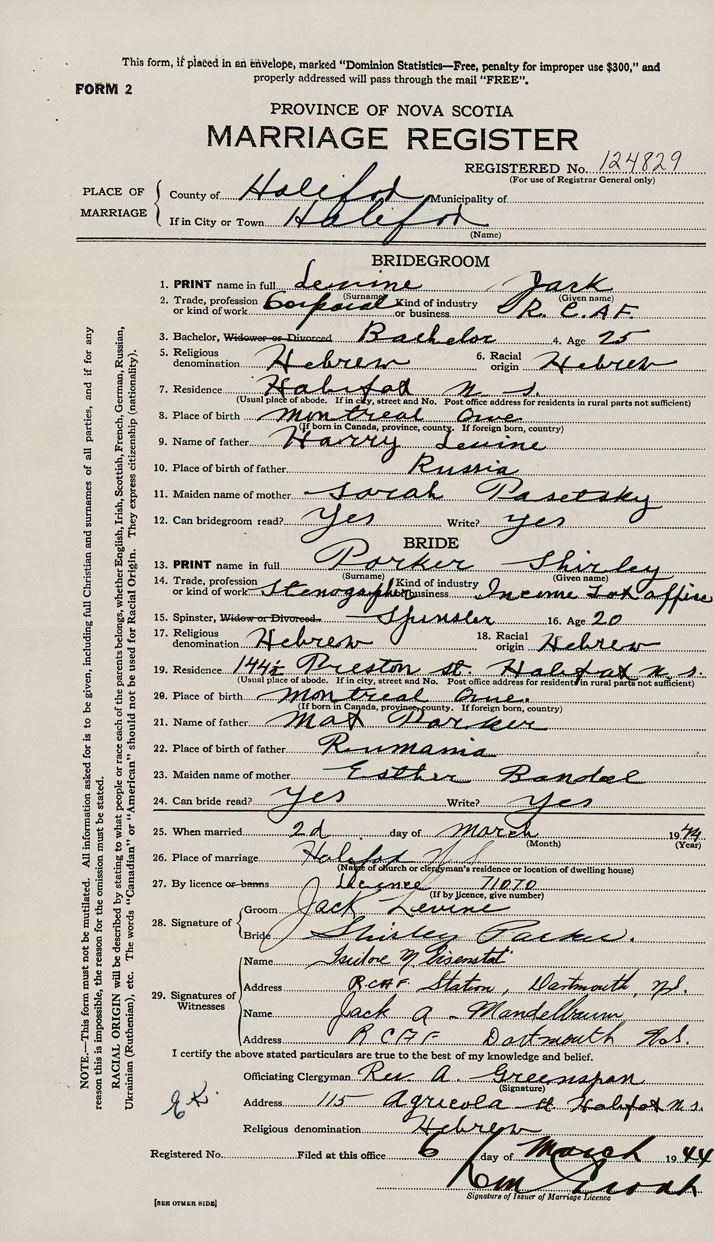 This form, if placed in an envelope, marked "Dominion Statistics—Free, penalty for improper use $300," and
properly addressed will pass through the mail "FREE".
FORM 2
PROVINCE OF NOVA SCOTIA
MARRIAGE REGISTER
REGISTERED No. 124829
(For use of Registrar General only)
PLACE OF MARRIAGE
County of Halifax Municipality of
If in City or Town Halifax
(Name)
BRIDEGROOM
1. PRINT name in full Levine Jack
(Surname) (Given name)
2. Trade, profession or kind of work Corporal Kind of industry or business R.C.A.F.
3. Bachelor, Widower or Divorced Bachelor 4. Age 25
5. Religious denomination Hebrew 6. Racial origin Hebrew
7. Residence Halifax N.S.
(Usual place of abode. If in city, street and No. Post office address for residents in rural parts not sufficient)
8. Place of birth Montreal Que.
(If born in Canada, province, county. If foreign born, country)
9. Name of father Harry Levine
10. Place of birth of father Russia
11. Maiden name of mother Sarah Pasetsky
12. Can bridegroom read? Yes Write? Yes
BRIDE
13. PRINT name in full Parker Shirley
(Surname) (Given name)
14. Trade, profession or kind of work Stenographer Kind of industry or business Income Tax office
15. Spinster, Widow or Divorced Spinster 16. Age 20
17. Religious denomination Hebrew 18. Racial origin Hebrew
19. Residence 144½ Preston St. Halifax N.S.
(Usual place of abode. If in city, street and No. Post office address for residents in rural parts not sufficient)
20. Place of birth Montreal Que.
(If born in Canada, province, county. If foreign born, country)
21. Name of father Max Parker
22. Place of birth of father Rumania
23. Maiden name of mother Esther Bandel
24. Can bride read? Yes Write? Yes
25. When married 2d day of March 1944
(Month) (Year)
26. Place of marriage Halifax N.S.
(Name of church or clergyman's residence or location of dwelling house)
27. By licence or banns Licence 71070
(If by licence, give number)
28. Signature of
Groom Jack Levine
Bride Shirley Parker.
29. Signatures of Witnesses
Name Isidore M. Eisenstat
Address RCAF Station, Dartmouth, N.S.
Name Jack A. Mandelbaum
Address RCAF Dartmouth N.S.
I certify the above stated particulars are true to the best of my knowledge and belief.
Officiating Clergyman Rev. A. Greenspan
(Signature)
Address 115 Agricola St Halifax N.S.
Religious denomination Hebrew
Registered No. Filed at this office 6 day of March 1944
Signature of Issuer of Marriage Licence
[SEE OTHER SIDE]
E.K.
NOTE.—This form must not be mutilated. All information asked for is to be given, including full Christian and surnames of all parties, and if for any
reason this is impossible, the reason for the omission must be stated.
RACIAL ORIGIN will be described by stating to what people or race each of the parents belongs, whether English, Irish, Scottish, French, German, Russian,
Ukrainian (Ruthenian), etc. The words "Canadian" or "American" should not be used for Racial Origin. They express citizenship (nationality).